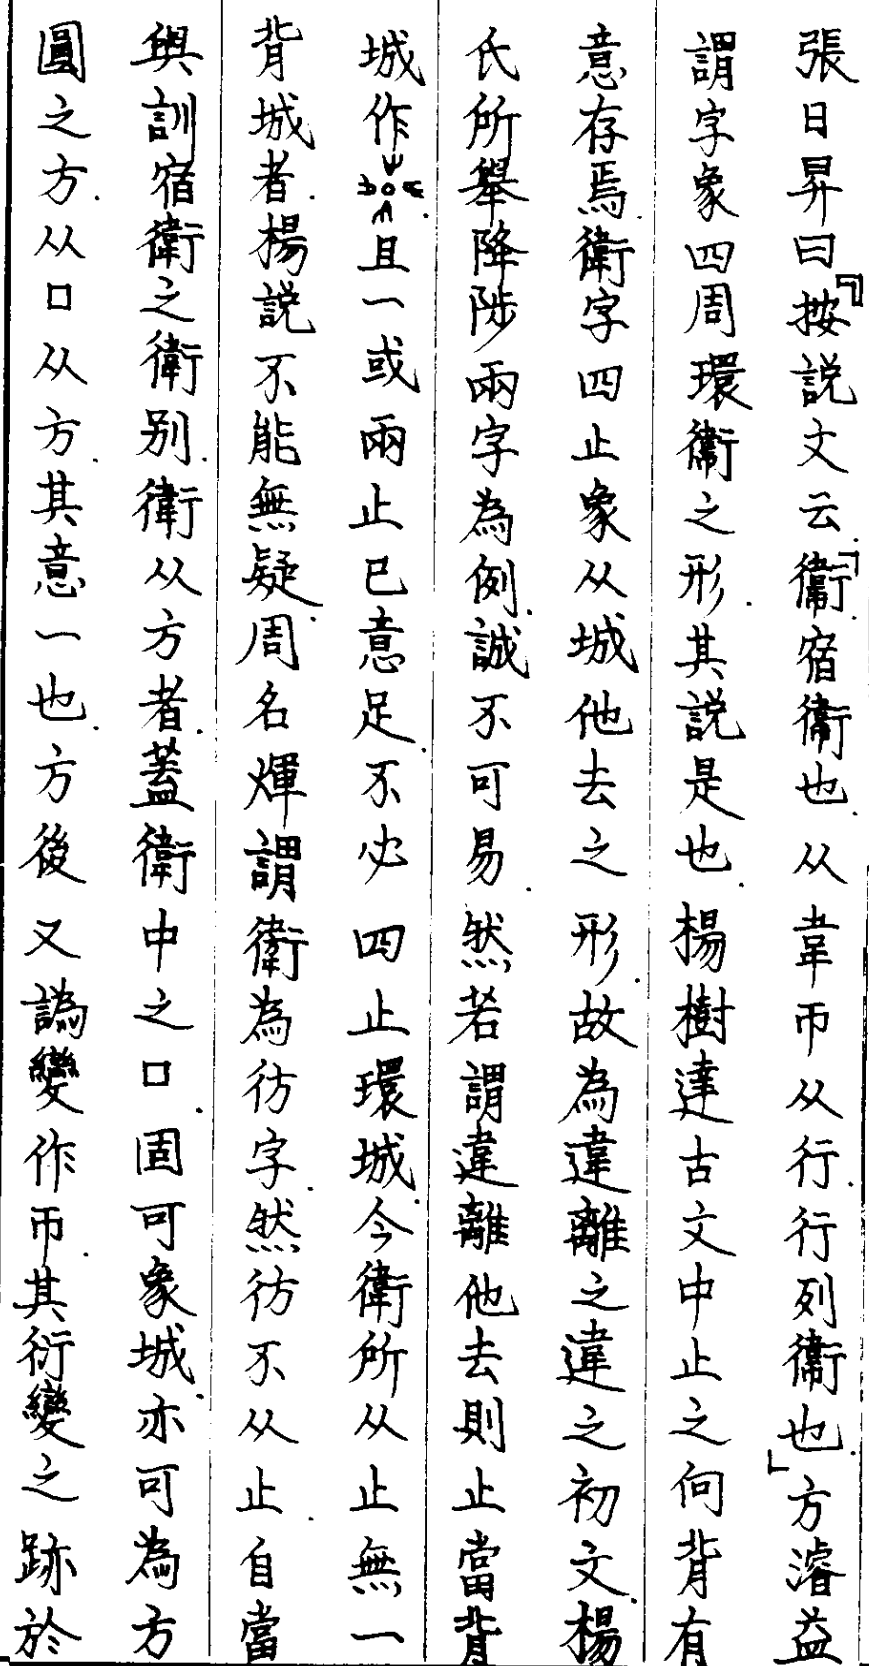 張日昇曰『按説文云.「衞宿衞也.从韋帀从行.行列衞也.」方濬益
謂字象四周環衞之形.其説是也.楊樹達古文中止之向背有
意存焉衛字四止象从城他去之形.故為違離之違之初文.楊
氏所舉降陟兩字為例.誠不可易.然若謂違離他去則止當背
城作.且一或兩止已意足.不必四止環城.今衛所从止無一
背城者.楊説不能無疑.周名煇謂衛為彷字.然彷不从止.自當
與訓宿衛之衛别.衛从方者.蓋衛中之口.固可象城.亦可為方
圓之方.从口从方.其意一也.方後又譌變作帀.其衍變之跡於